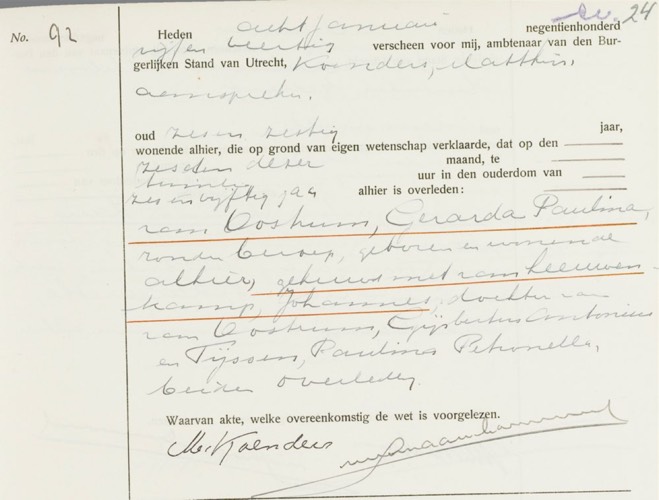 24
No. 92
Heden acht Januari negentienhonderd
vijf en veertig verscheen voor mij, ambtenaar van den Bur-
gerlijken Stand van Utrecht, Koenders, Matthijs,
aanspreker,
oud zes en zestig jaar,
wonende alhier, die op grond van eigen wetenschap verklaarde, dat op den
zesden dezer maand, te
twintig uur in den ouderdom van
zes en vijftig jaar alhier is overleden:
van Oostrum, Gerarda Paulina,
zonder beroep, geboren en wonende
alhier, gehuwd met van Leeuwen-
kamp, Johannes, dochter van
van Oostrum, Gijsbertus Antonius
en Tijssen, Paulina Petronella,
beiden overleden.
Waarvan akte, welke overeenkomstig de wet is voorgelezen.
M Koenders